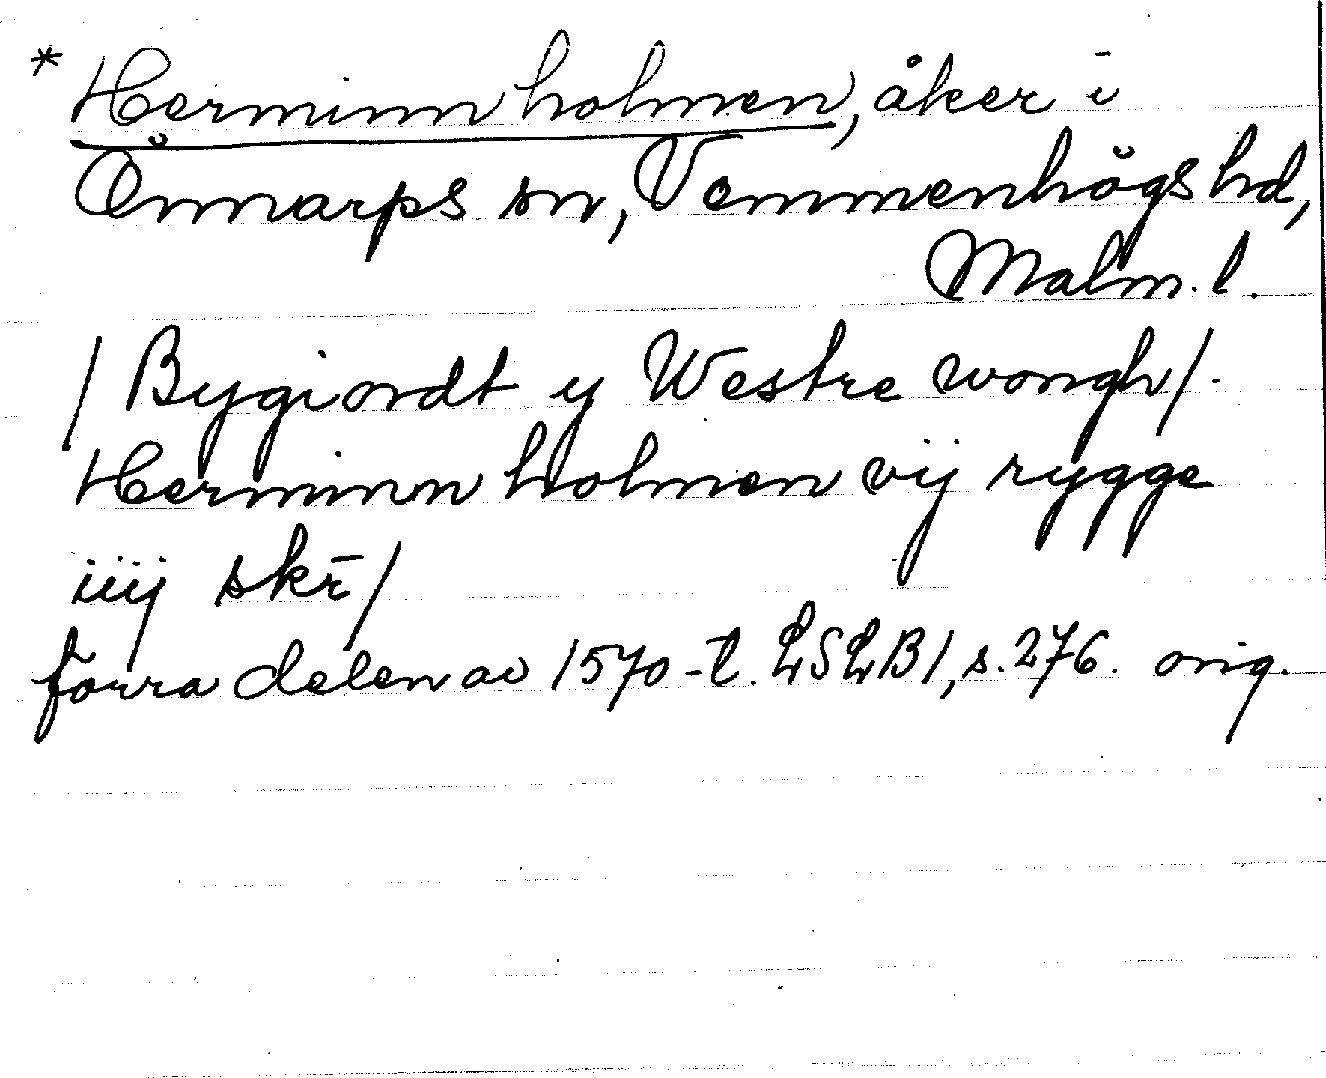 * Herminn holmen, åker i
Önnarps sn, Vemmenhögs hd,
Malm. l.
/ Bygiordt y Westre wongh /.
Herminn holmen vij rygge
iiij skr̄ /
förra delen av 1570-t. LSLB 1, s. 276. orig.